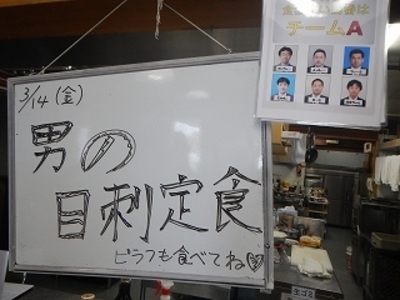 3/14(金)
男の
目刺定食
ピラフも食べてね♡
チームA
生ゴミ